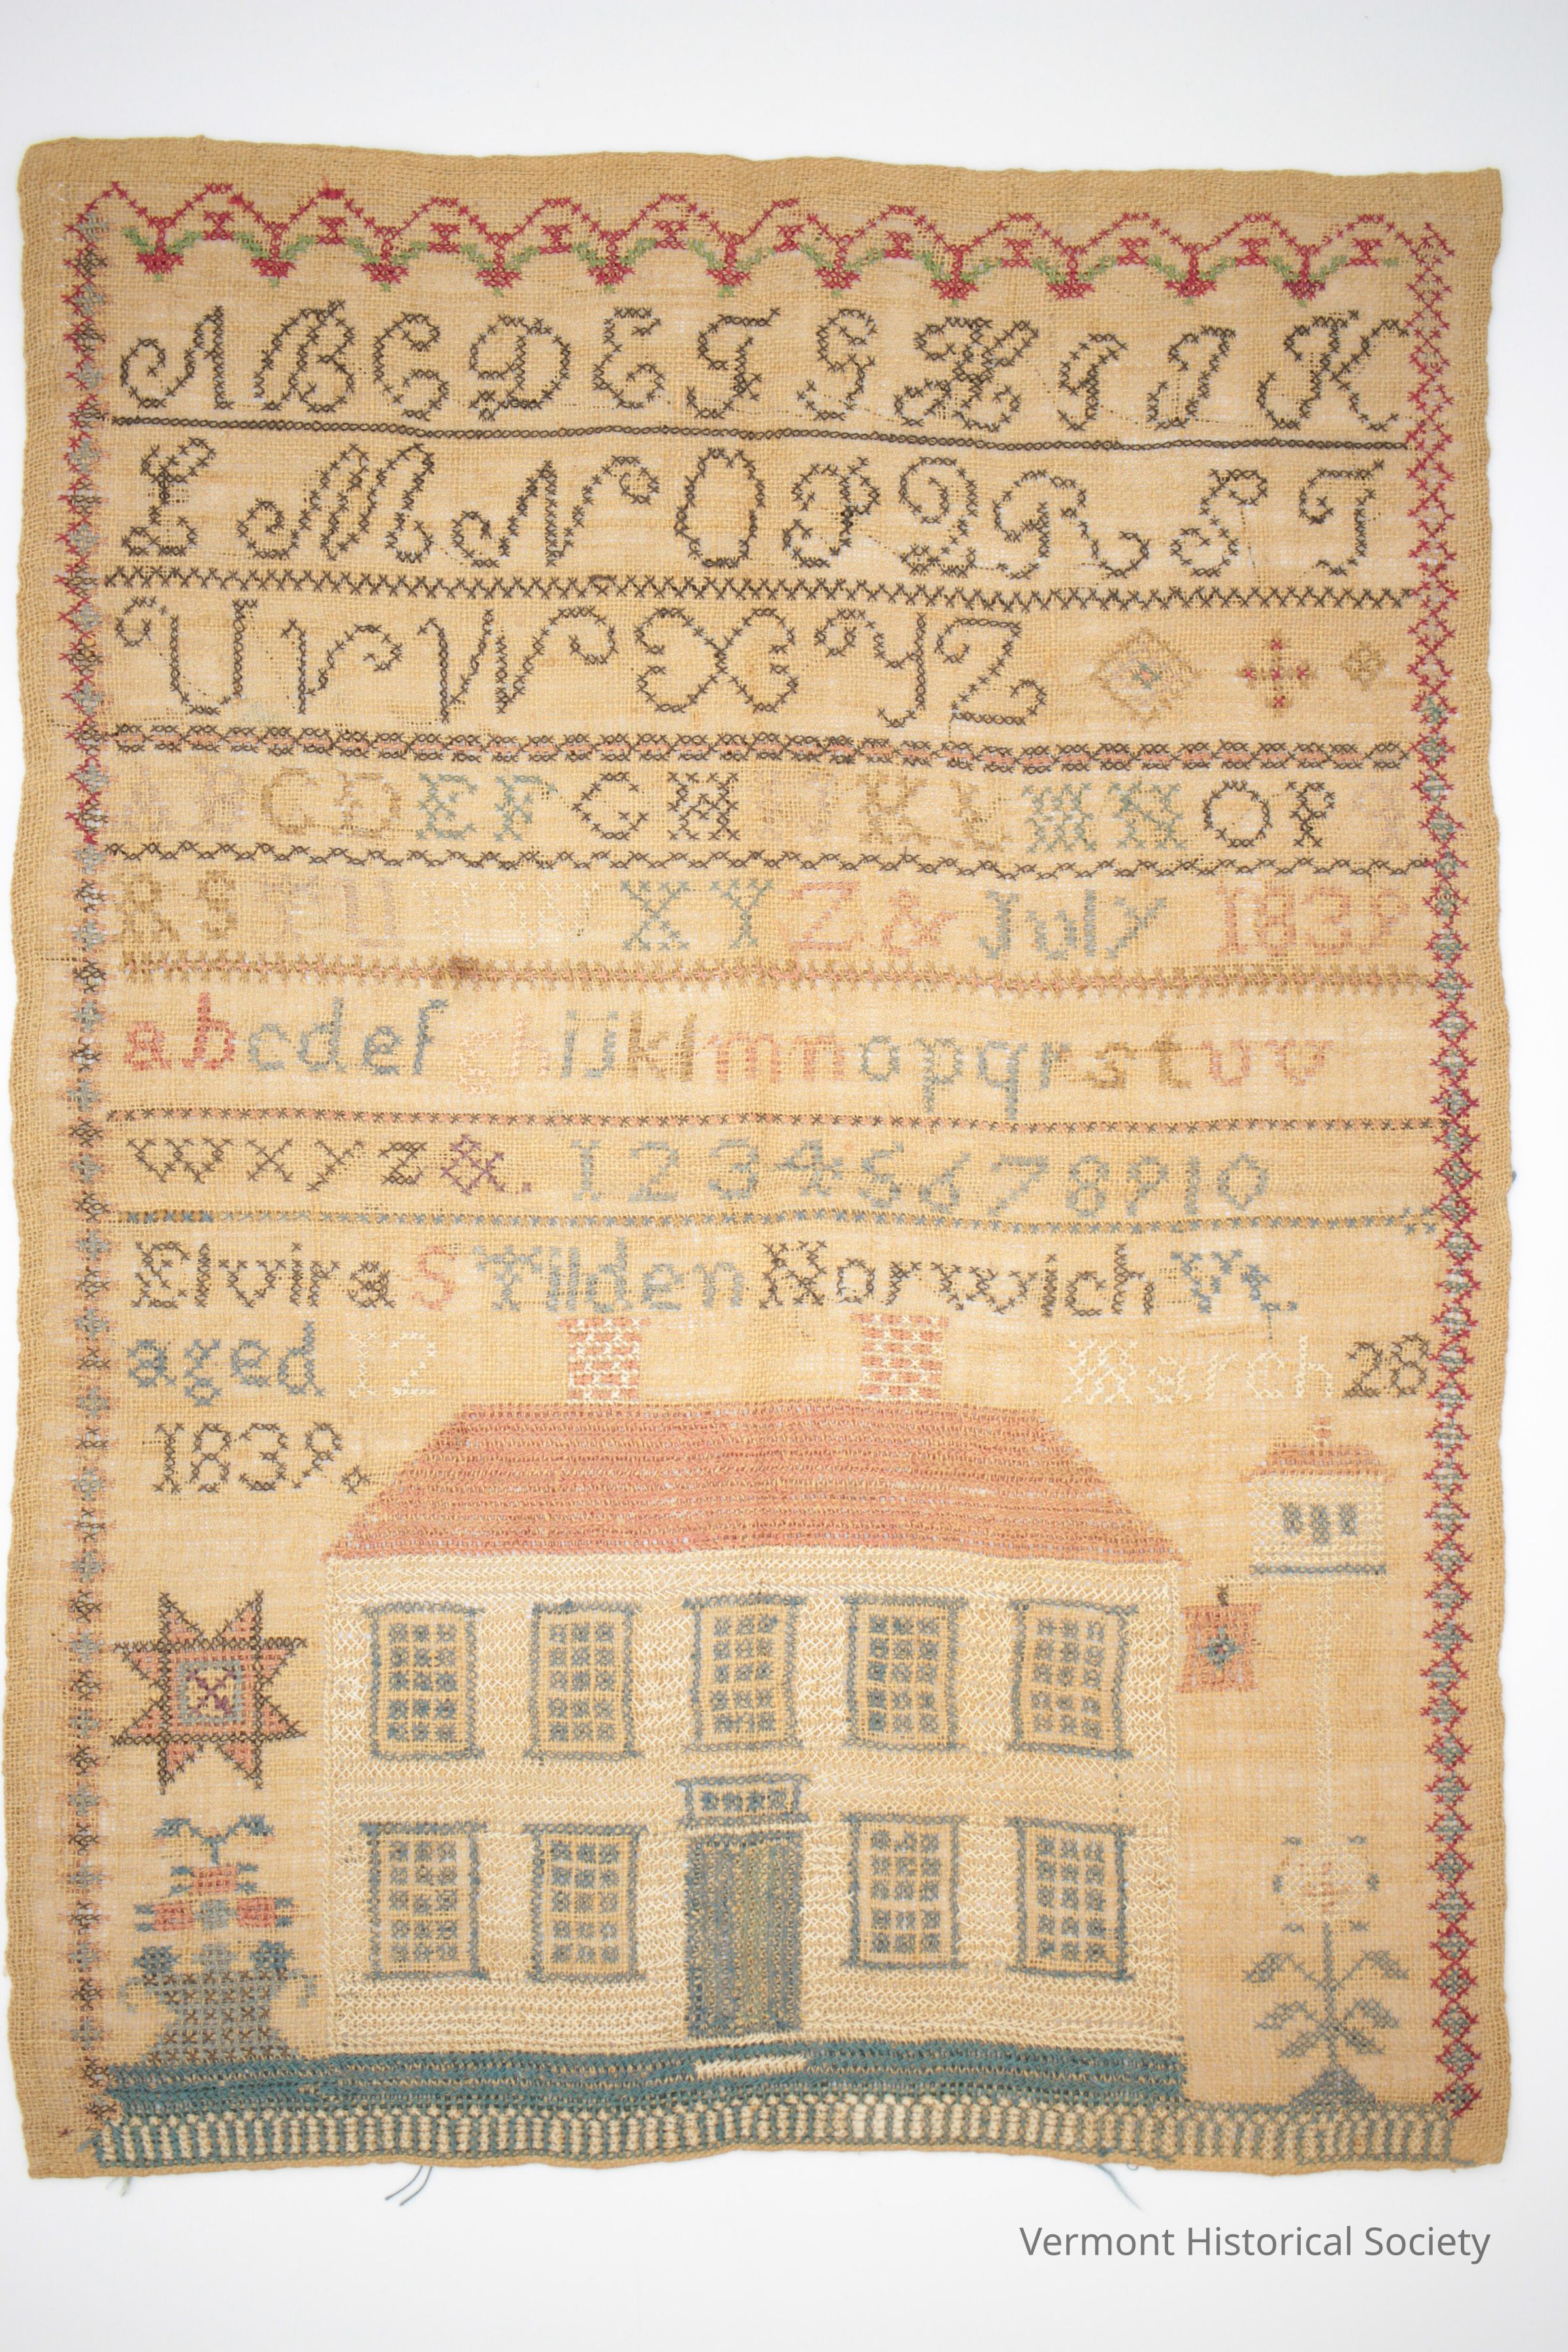 A B C D E F G H I J K
L M N O P Q R S T
U V W X Y Z
A B C D E F G H I J K L M N O P Q
R S T U V W X Y Z & July 1839
a b c d e f g h i j k l m n o p q r s t u v
w x y z &. 1 2 3 4 5 6 7 8 9 10
Elvira S Tilden Norwich Vt.
aged 12 March 28
1839.
Vermont Historical Society